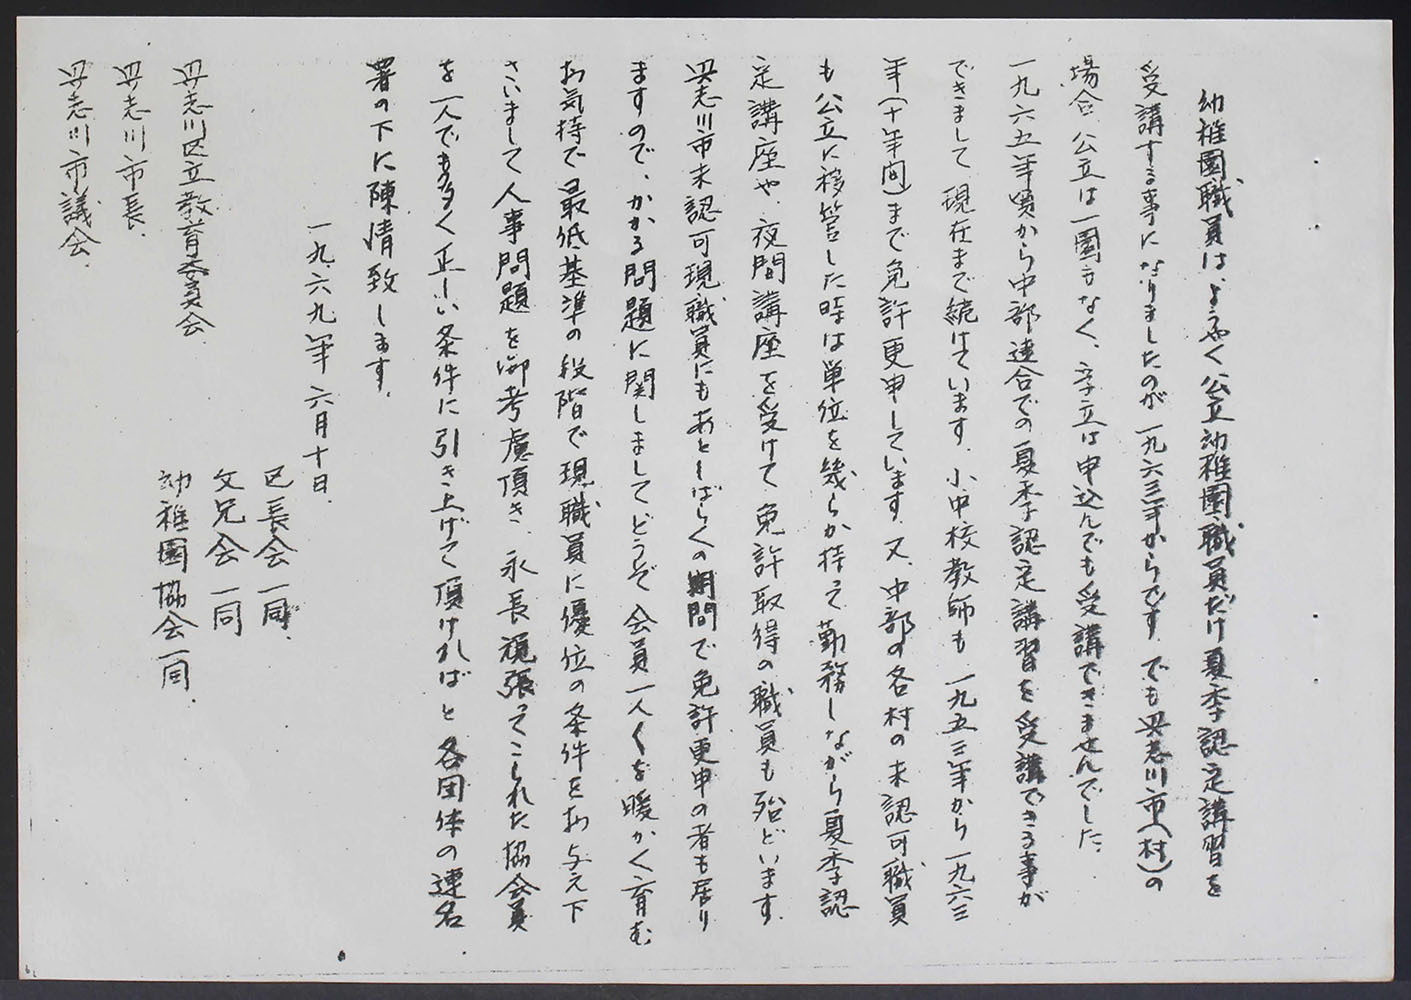 幼稚園職員は、ようやく公立幼稚園職員だけ夏季認定講習を
受講する事になりましたのが一九六三年からです。でも具志川市(村)の
場合、公立は一園もなく、字立は申込んでも受講できませんでした。
一九六五年頃から中部連合での夏季認定講習を受講できる事が
できまして、現在まで続けています。小中校教師も一九五三年から一九六三
年(十年間)まで免許更申しています。又、中部の各村の未認可職員
も公立に移管した時は単位を幾らか持って勤務しながら夏季認
定講座や、夜間講座を受けて免許取得の職員も殆どいます。
具志川市未認可現職員にもあとしばらくの期間で免許更申の者も居り
ますので、かかる問題に関しましてどうぞ会員一人々を暖かく育む
お気持で最低基準の段階で現職員に優位の条件をお与え下
さいまして人事問題を御考慮頂き、永長頑張ってこられた協会員
を一人でも多く正しい条件に引き上げて頂ければと各団体の連名
署の下に陳情致します。
一九六九年六月十日.
区長会一同.
父兄会一同
幼稚園協会一同.
具志川区立教育委員会.
具志川市長.
具志川市議会.